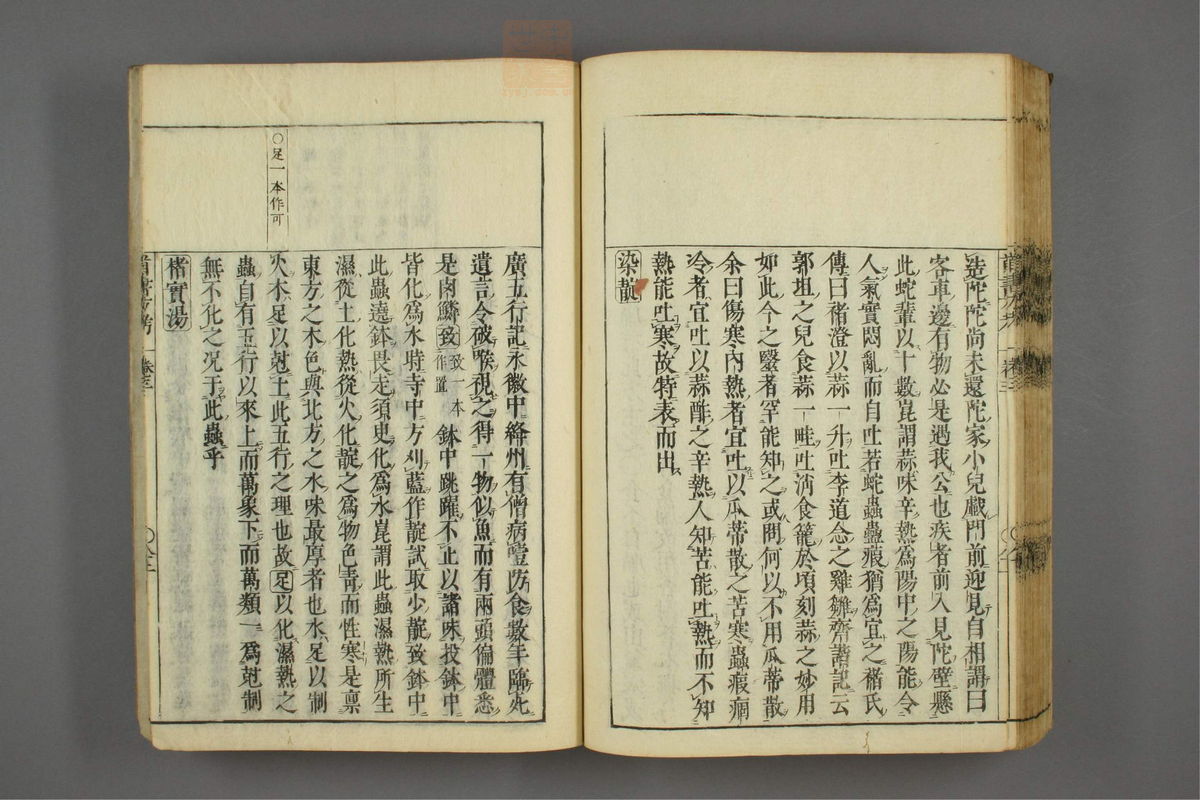 造陀陀尚未還陀家小兒戲門前迎見自相謂曰
客車邊有物必是遇我公也疾者前入見陀壁懸
此蛇輩以十數崑謂蒜味辛熱為陽中之陽能令
人氣實悶亂而自吐若蛇蟲蠱瘕猶為宜之褚氏
傳曰褚澄以蒜一升吐李道念之雞雛齊諧記云
郭坦之兒食蒜一畦吐消食籠於頃刻蒜之妙用
如此今之醫者罕能知之或問何以不用瓜蒂散
余曰傷寒內熱者宜吐以瓜蒂散之苦寒蟲瘕痼
冷者宜吐以蒜酢之辛熱人知苦能吐熱而不知
熱能吐寒故特表而出
染靛
廣五行記永徽中絳州有僧病噎妨食數年臨死
遺言令破喉視之得一物似魚而有兩頭徧體悉
是肉鱗致致一本作置鉢中跳躍不止以諸味投鉢中
皆化為水時寺中方刈藍作靛試取少靛致鉢中
此蟲遶鉢畏走須臾化為水崑謂此蟲濕熱所生
濕從土化熱從火化靛之為物色青而性寒是稟
東方之木色與北方之水味最厚者也水足以制
火木足以尅土此五行之理也故足以化濕熱之
蟲自有五行以來上而萬象下而萬類一為尅制
無不化之况于此蟲乎
楮實湯
○足一本作可